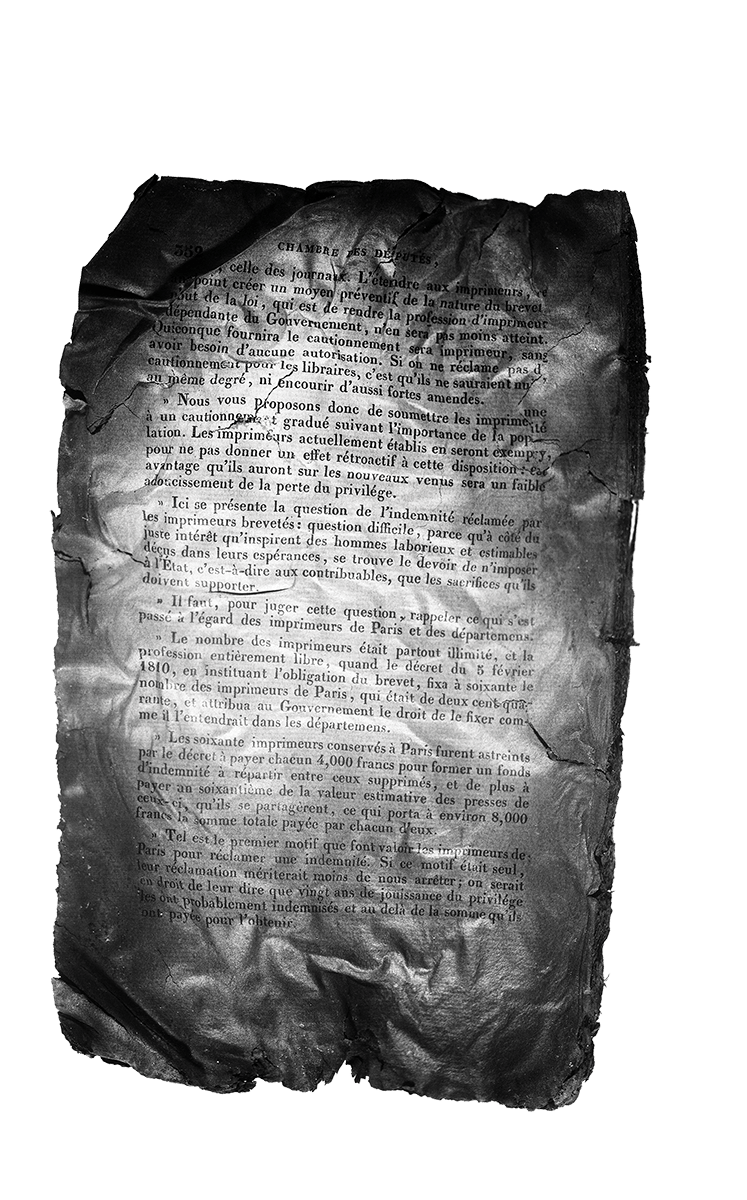 352 CHAMBRE DES DÉPUTÉS,
celle des journaux. L'étendre aux imprimeurs,
point créer un moyen préventif de la nature du brevet
but de la loi, qui est de rendre la profession d'imprimeur
dépendante du Gouvernement, n'en sera pas moins atteint.
Quiconque fournira le cautionnement sera imprimeur, sans
avoir besoin d'aucune autorisation. Si on ne réclame pas d'
cautionnement pour les libraires, c'est qu'ils ne sauraient nu
au même degré, ni encourir d'aussi fortes amendes.
» Nous vous proposons donc de soumettre les imprime
à un cautionnement gradué suivant l'importance de la pop
lation. Les imprimeurs actuellement établis en seront exempts,
pour ne pas donner un effet rétroactif à cette disposition :
avantage qu'ils auront sur les nouveaux venus sera un faible
adoucissement de la perte du privilége.
» Ici se présente la question de l'indemnité réclamée par
les imprimeurs brevetés : question difficile, parce qu'à côté du
juste intérêt qu'inspirent des hommes laborieux et estimables
déçus dans leurs espérances, se trouve le devoir de n'imposer
à l'État, c'est-à-dire aux contribuables, que les sacrifices qu'ils
doivent supporter.
» Il faut, pour juger cette question, rappeler ce qui s'est
passé à l'égard des imprimeurs de Paris et des départemens.
» Le nombre des imprimeurs était partout illimité, et la
profession entièrement libre, quand le décret du 5 février
1810, en instituant l'obligation du brevet, fixa à soixante le
nombre des imprimeurs de Paris, qui était de deux cent qua-
rante, et attribua au Gouvernement le droit de le fixer com-
me il l'entendrait dans les départemens.
» Les soixante imprimeurs conservés à Paris furent astreints
par le décret à payer chacun 4,000 francs pour former un fonds
d'indemnité à répartir entre ceux supprimés, et de plus à
payer un soixantième de la valeur estimative des presses de
ceux-ci, qu'ils se partagèrent, ce qui porta à environ 8,000
francs la somme totale payée par chacun d'eux.
» Tel est le premier motif que font valoir les imprimeurs de
Paris pour réclamer une indemnité. Si ce motif était seul,
leur réclamation mériterait moins de nous arrêter; on serait
en droit de leur dire que vingt ans de jouissance du privilége
les ont probablement indemnisés et au delà de la somme qu'ils
ont payée pour l'obtenir.